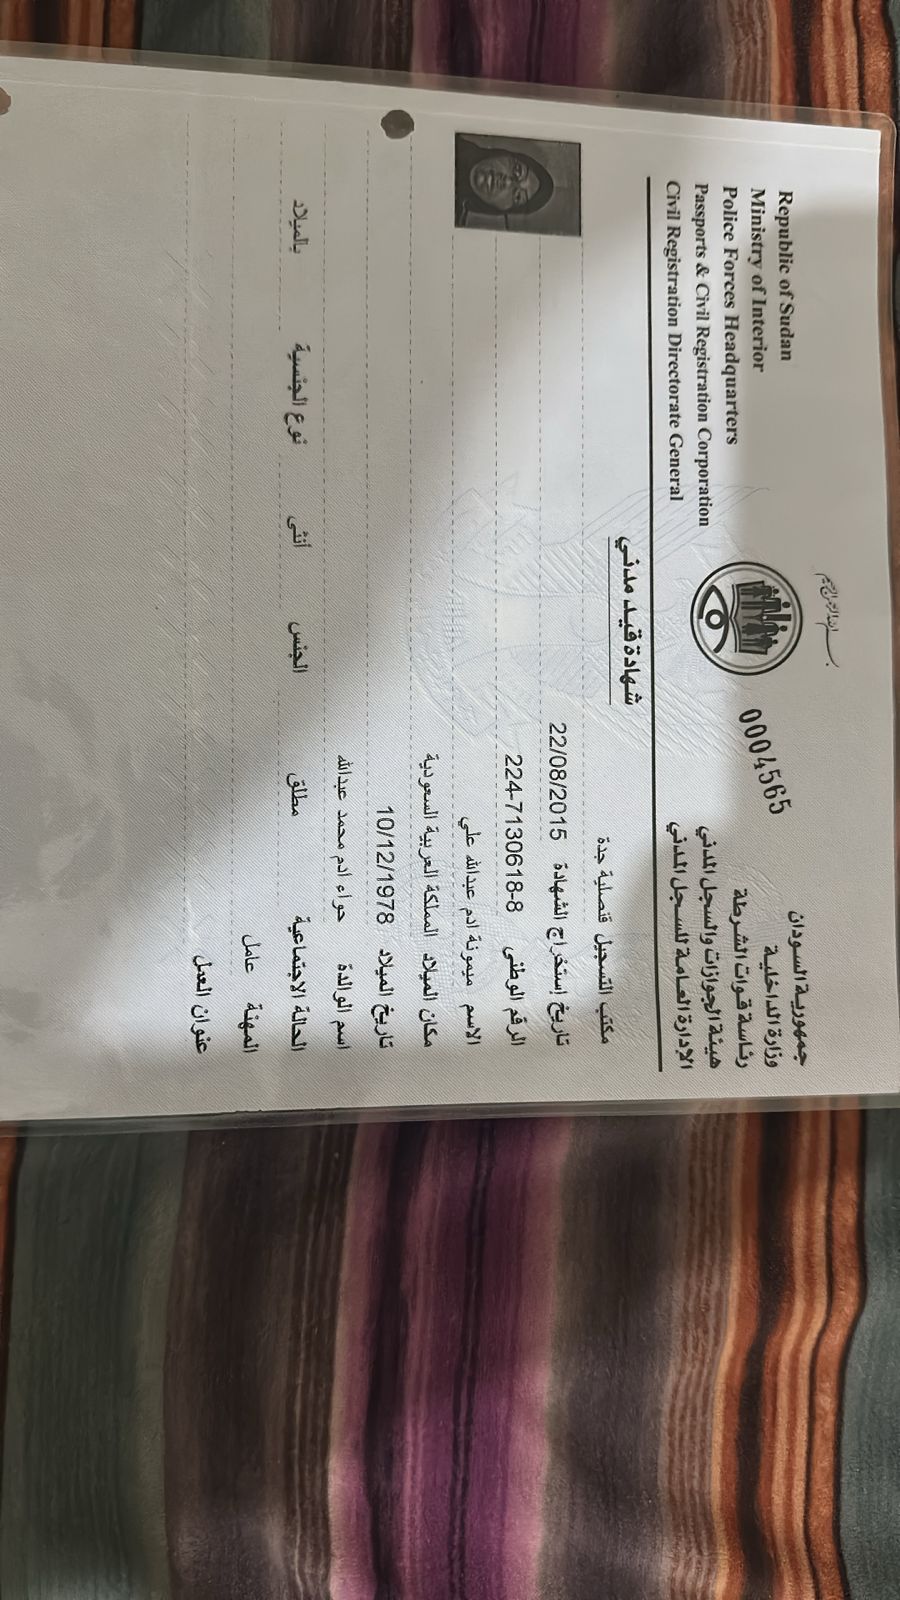 Republic of Sudan
Ministry of Interior
Police Forces Headquarters
Passports & Civil Registration Corporation
Civil Registration Directorate General
0004565
جمهورية السودان
وزارة الداخلية
رئاسة قوات الشرطة
هيئة الجوازات والسجل المدني
الإدارة العامة للسجل المدني
شهادة قيد مدني
مكتب التسجيل قنصلية جدة
تاريخ إستخراج الشهادة 22/08/2015
الرقم الوطني 224-7130618-8
الاسم ميمونة ادم عبدالله علي
مكان الميلاد المملكة العربية السعودية
تاريخ الميلاد 10/12/1978
اسم الوالدة حواء ادم محمد عبدالله
الحالة الاجتماعية مطلق الجنس أنثى نوع الجنسية بالميلاد
المهنة عامل
عنوان العمل